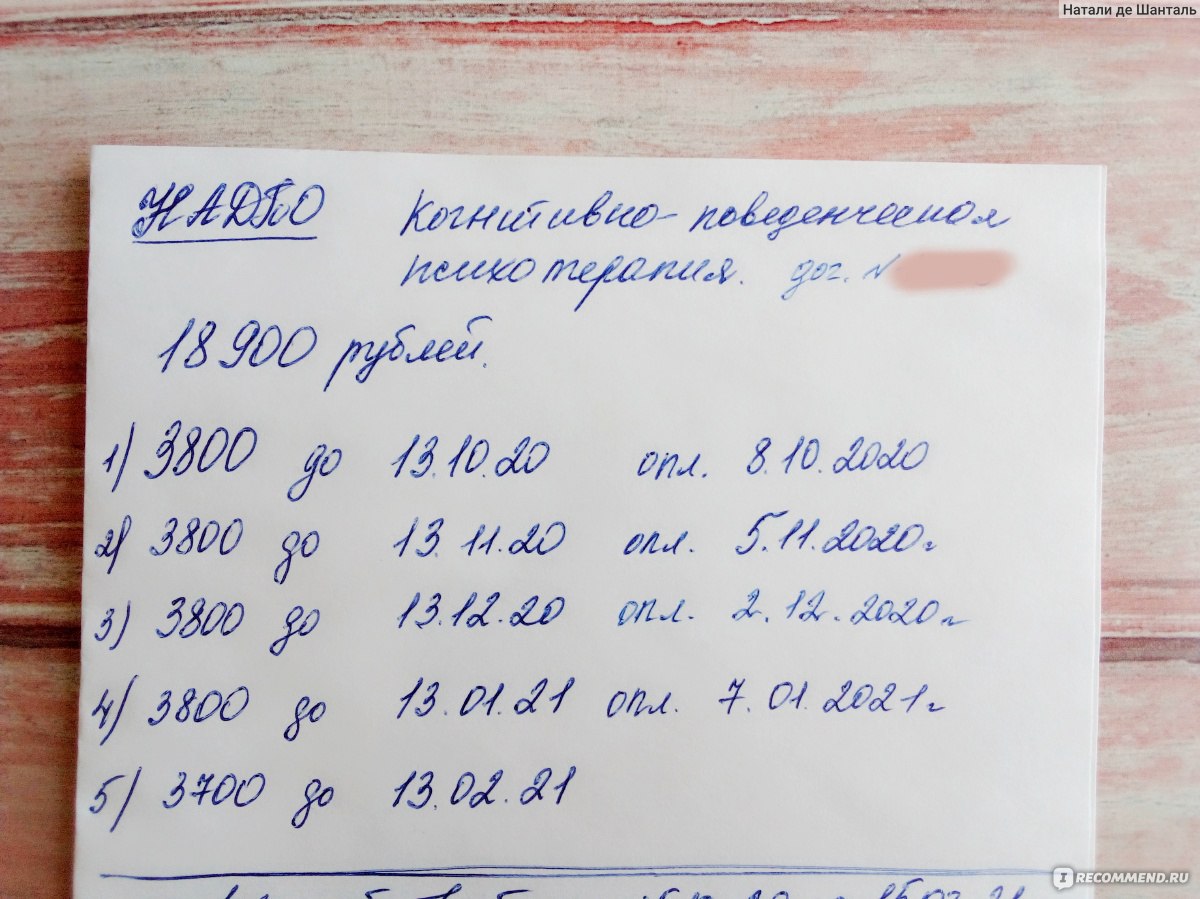 Натали де Шанталь
НАДПО Когнитивно-поведенческая
психотерапия. дог. №
18 900 рублей.
1) 3800 до 13.10.20 опл. 8.10.2020
2) 3800 до 13.11.20 опл. 5.11.2020г
3) 3800 до 13.12.20 опл. 2.12.2020г
4) 3800 до 13.01.21 опл. 7.01.2021г
5) 3700 до 13.02.21
IRECOMMEND.RU